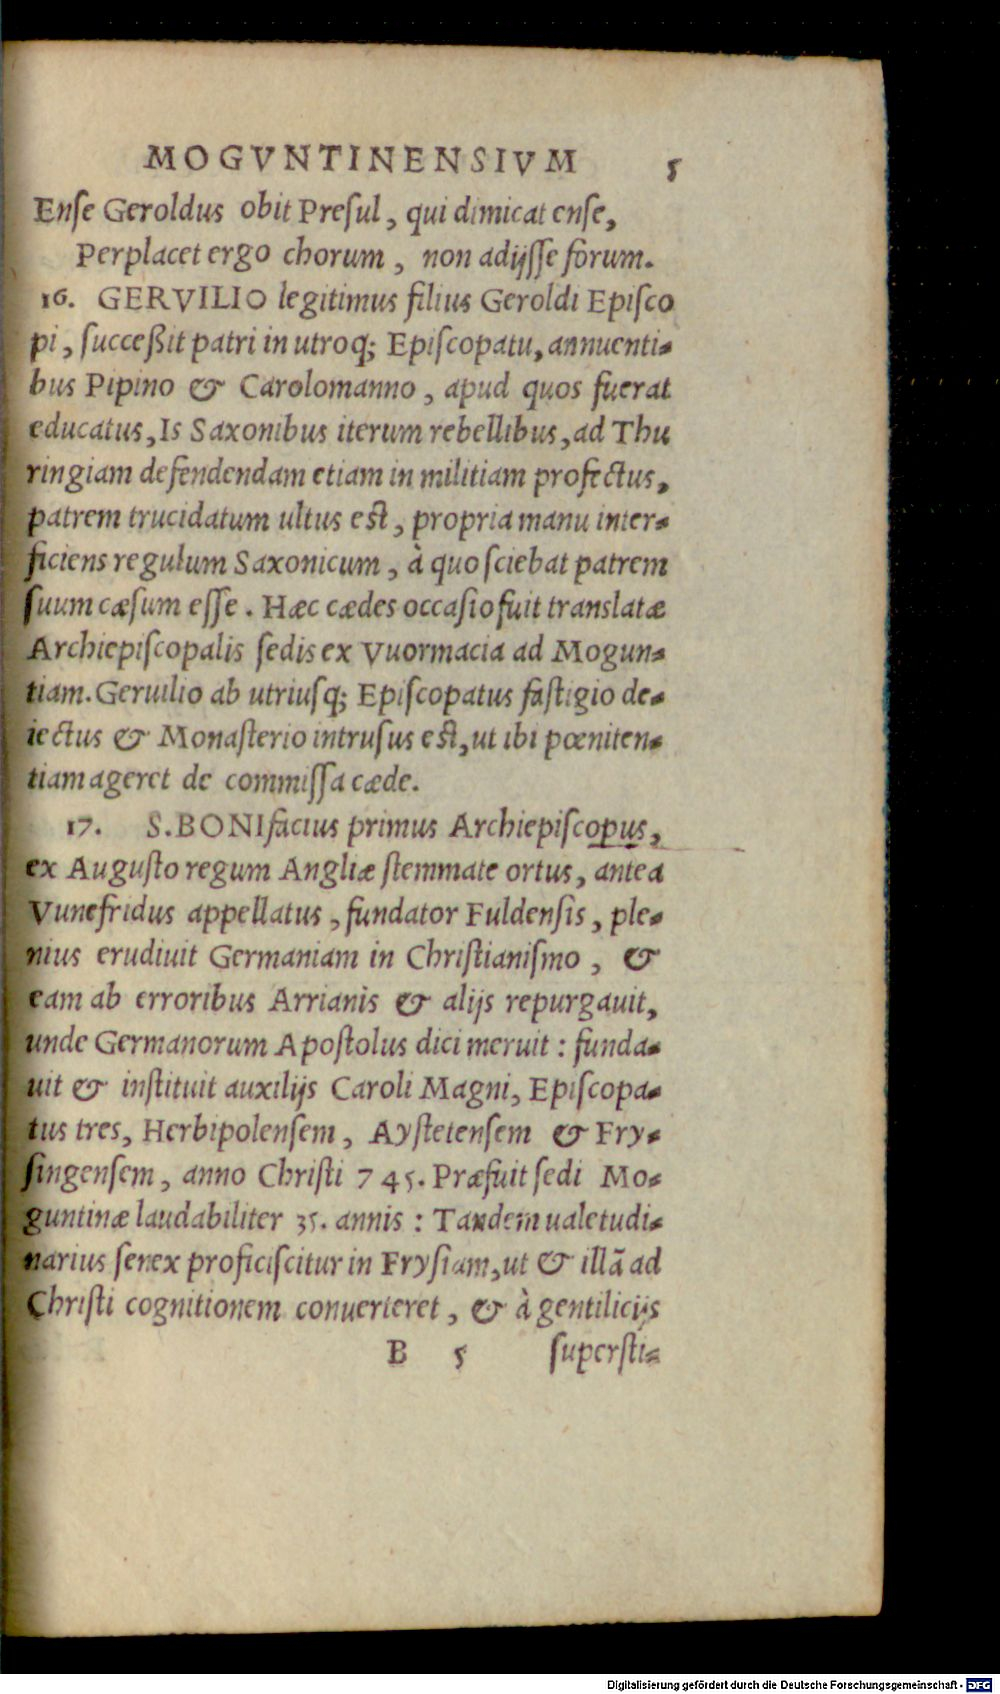 MOGVNTINENSIVM 5
Enſe Geroldus obit Preſul, qui dimicat enſe,
Perplacet ergo chorum, non adijſſe forum.
16. GERVILIO legitimus filius Geroldi Epiſco
pi, ſucceßit patri in utroq; Epiſcopatu, annuenti-
bus Pipino & Carolomanno, apud quos fuerat
educatus, Is Saxonibus iterum rebellibus, ad Thu
ringiam defendendam etiam in militiam profectus,
patrem trucidatum ultus eſt, propria manu inter-
ficiens regulum Saxonicum, à quo ſciebat patrem
ſuum cæſum eſſe. Hæc cædes occaſio fuit translatæ
Archiepiſcopalis ſedis ex Vuormacia ad Mogun-
tiam. Geruilio ab utriuſq; Epiſcopatus faſtigio de-
iectus & Monaſterio intruſus eſt, ut ibi pœniten-
tiam ageret de commiſſa cæde.
17. S. BONIfacius primus Archiepiſcopus,
ex Auguſto regum Angliæ ſtemmate ortus, antea
Vunefridus appellatus, fundator Fuldenſis, ple-
nius erudiuit Germaniam in Chriſtianiſmo, &
eam ab erroribus Arrianis & alijs repurgauit,
unde Germanorum Apoſtolus dici meruit: funda-
uit & inſtituit auxilijs Caroli Magni, Epiſcopa-
tus tres, Herbipolenſem, Ayſtetenſem & Fry-
ſingenſem, anno Chriſti 745. Præfuit ſedi Mo-
guntinæ laudabiliter 35. annis: Tandem ualetudi-
narius ſenex proficiſcitur in Fryſiam, ut & illā ad
Chriſti cognitionem conuerteret, & à gentilicijs
B 5 ſuperſti-
Digitalisierung gefördert durch die Deutsche Forschungsgemeinschaft - DFG